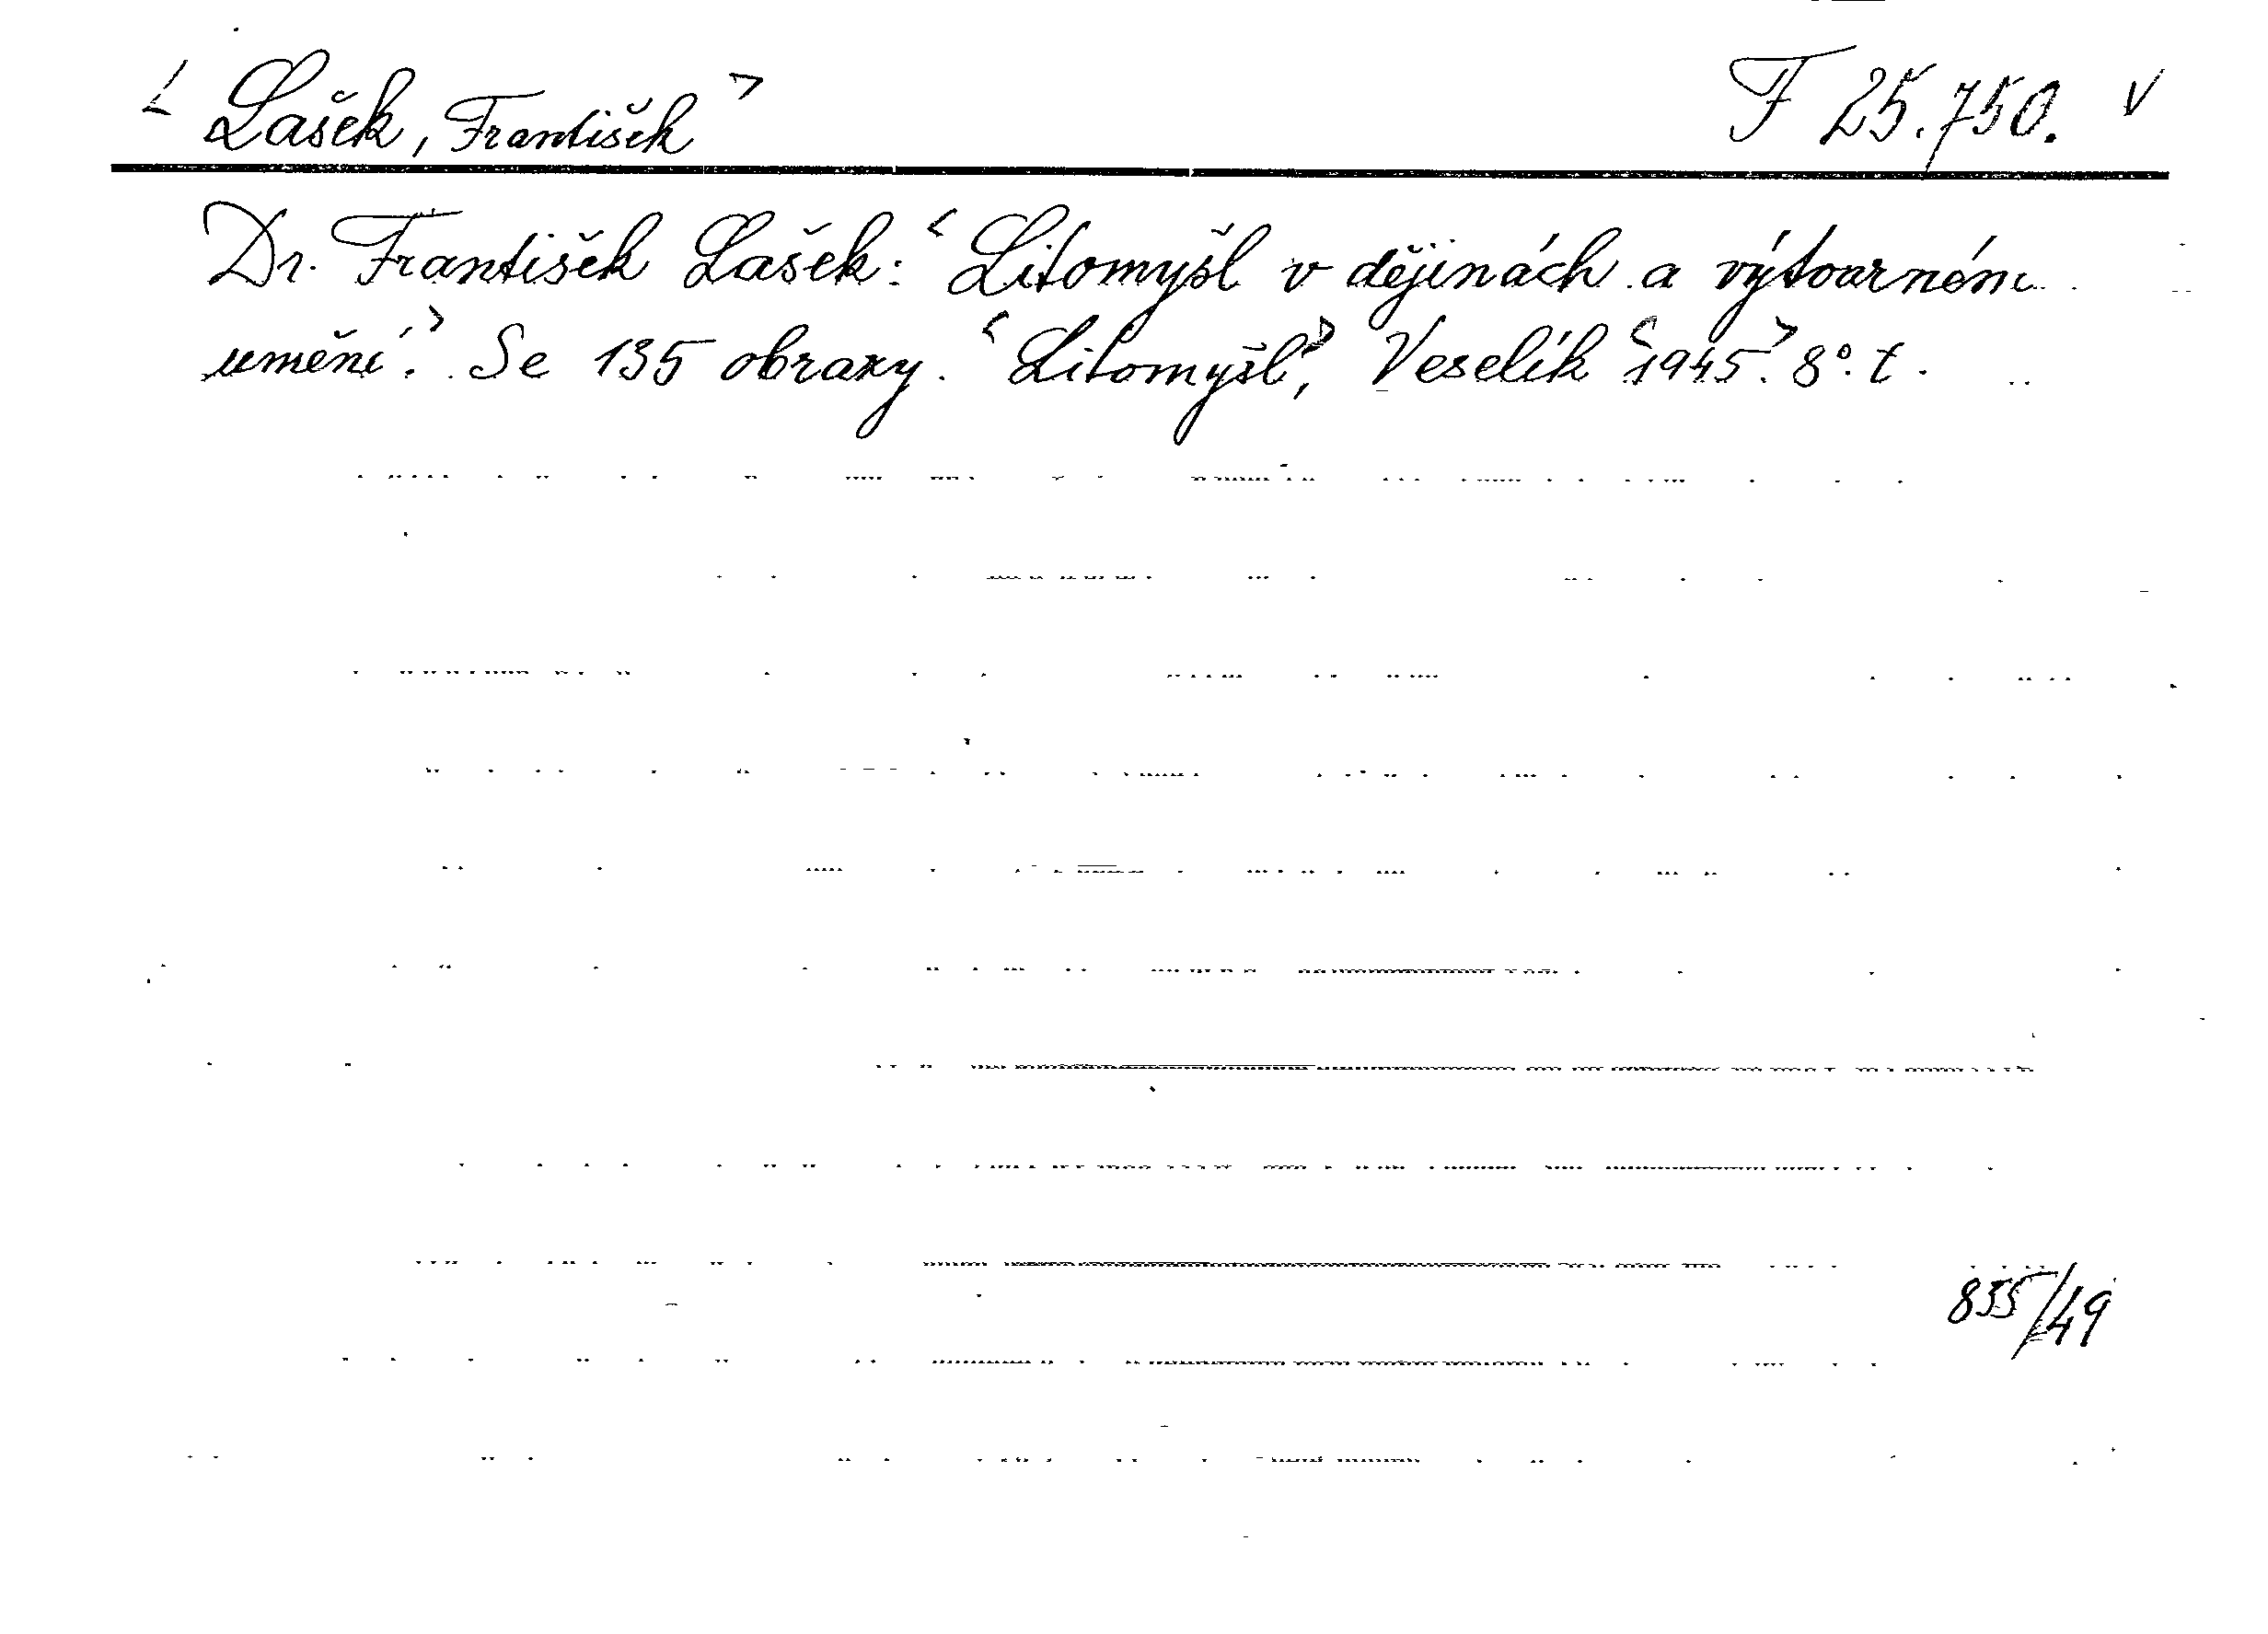 < Lašek, František > F 25.750. v
Dr. František Lašek: < Litomyšl v dějinách a výtvarném
umění. > Se 135 obrazy. < Litomyšl >, Veselík < 1945. > 8°. t.
835/49